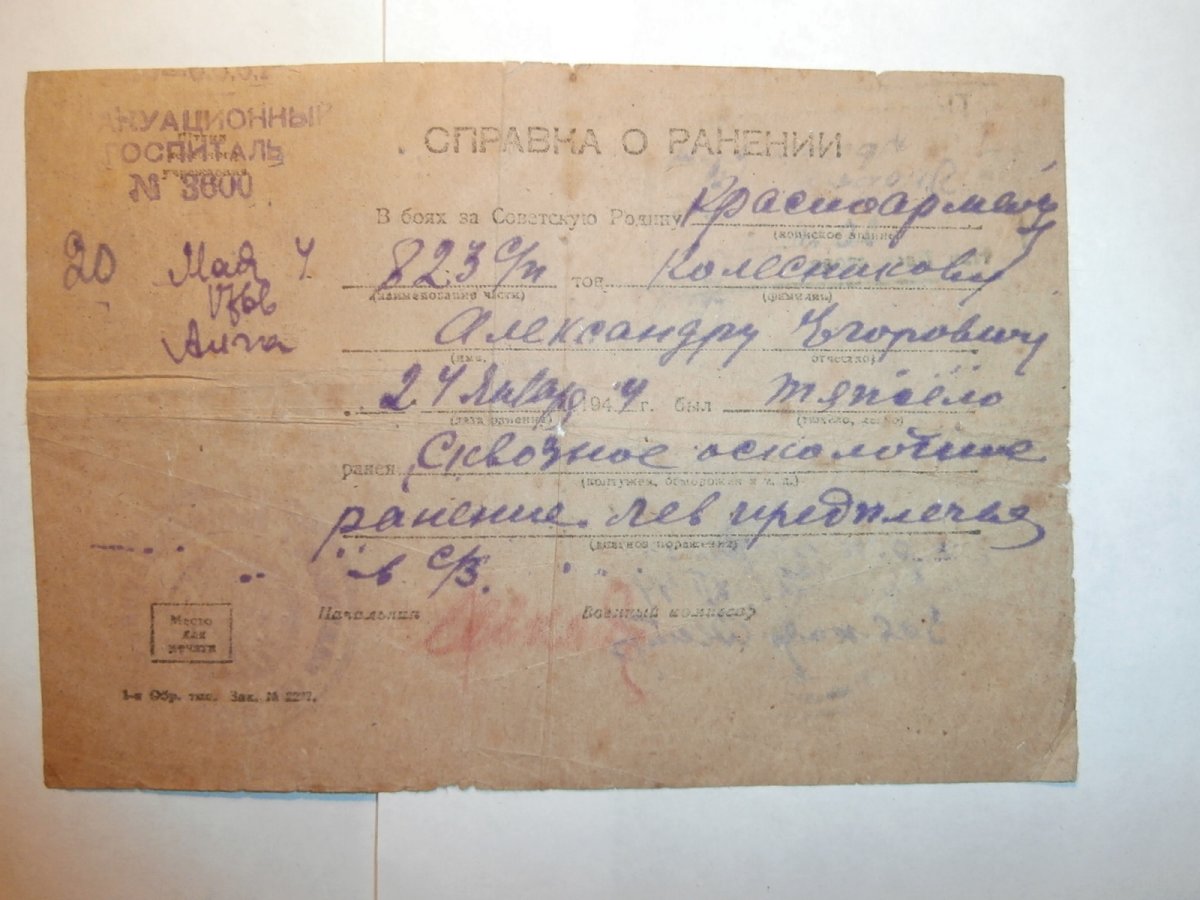 АКУАЦИОННЫЙ
ГОСПИТАЛЬ
№ 3600
20 Мая 4
СПРАВКА О РАНЕНИИ
В боях за Советскую Родину Красноармейцу
(воинское звание)
823 с/п тов. Колесникову
(наименование части) (фамилия)
Александру Егоровичу
(имя, отчество)
24 января 1944 г. был тяжело
(дата ранения) (тяжело, легко)
ранен Сквозное осколочное
(контужен, обморожен и т. д.)
ранение лев предплечья
(диагноз поражения)
в с/з.
Начальник Военный комиссар
Место
для
печати
1-я Обр. тип. Зак. №